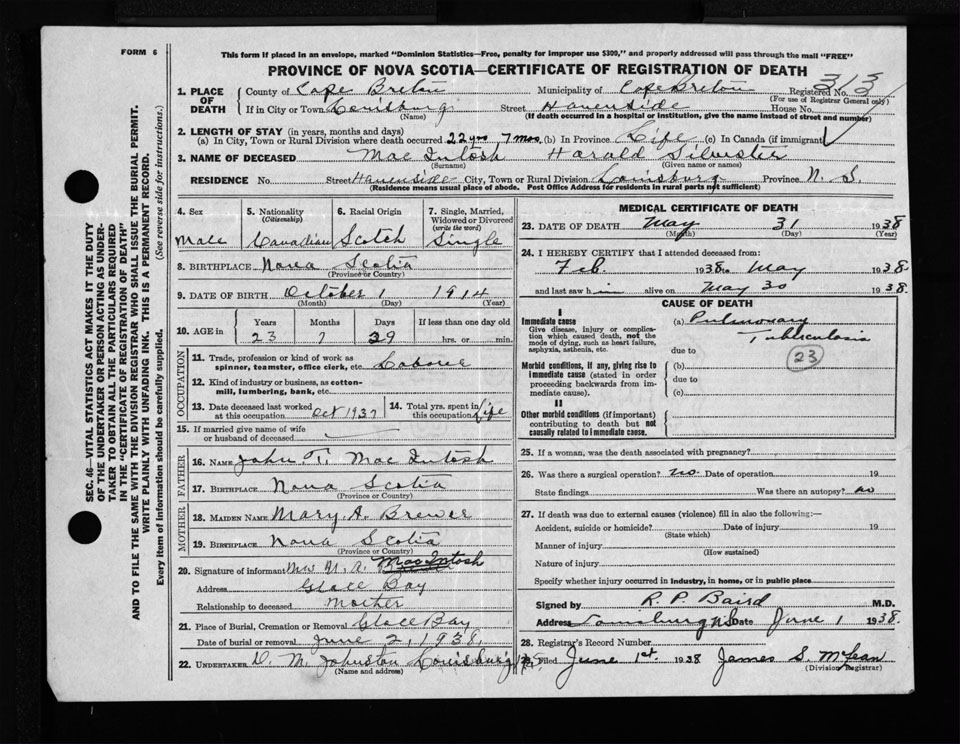 FORM 6
This form if placed in an envelope, marked "Dominion Statistics—Free, penalty for improper use $300," and properly addressed will pass through the mail "FREE"
PROVINCE OF NOVA SCOTIA—CERTIFICATE OF REGISTRATION OF DEATH
SEC. 46—VITAL STATISTICS ACT MAKES IT THE DUTY
OF THE UNDERTAKER OR PERSON ACTING AS UNDER-
TAKER TO OBTAIN ALL THE PARTICULARS REQUIRED
IN THE "CERTIFICATE OF REGISTRATION OF DEATH"
AND TO FILE THE SAME WITH THE DIVISION REGISTRAR WHO SHALL ISSUE THE BURIAL PERMIT.
WRITE PLAINLY WITH UNFADING INK. THIS IS A PERMANENT RECORD.
Every item of information should be carefully supplied. (See reverse side for instructions.)
1. PLACE OF DEATH County of Cape Breton Municipality of Cape Breton Registered No. 313
(For use of Registrar General only)
If in City or Town Louisburg Street Havenside House No.
(Name) (If death occurred in a hospital or institution, give the name instead of street and number)
2. LENGTH OF STAY (in years, months and days)
(a) In City, Town or Rural Division where death occurred 22 yrs 7 mos. (b) In Province Life (c) In Canada (if immigrant)
3. NAME OF DECEASED Mac Intosh Harald Silvester
(Surname) (Given name or names)
RESIDENCE No. Street Havenside City, Town or Rural Division Louisburg Province N. S.
(Residence means usual place of abode. Post Office Address for residents in rural parts not sufficient)
4. Sex 5. Nationality (Citizenship) 6. Racial Origin 7. Single, Married, Widowed or Divorced (write the word)
Male Canadian Scotch Single
8. BIRTHPLACE Nova Scotia
(Province or Country)
9. DATE OF BIRTH October 1 1914
(Month) (Day) (Year)
10. AGE in Years Months Days If less than one day old
23 7 29 hrs. or min.
OCCUPATION
11. Trade, profession or kind of work as
spinner, teamster, office clerk, etc. Labour
12. Kind of industry or business, as cotton-
mill, lumbering, bank, etc.
13. Date deceased last worked at this occupation Oct 1937 14. Total yrs. spent in this occupation Life
15. If married give name of wife
or husband of deceased
FATHER
16. NAME John T. Mac Intosh
17. BIRTHPLACE Nova Scotia
(Province or Country)
MOTHER
18. MAIDEN NAME Mary A. Brewer
19. BIRTHPLACE Nova Scotia
(Province or Country)
20. Signature of informant Mrs M. A. MacIntosh
Address Glace Bay
Relationship to deceased Mother
21. Place of Burial, Cremation or Removal Glace Bay
Date of burial or removal June 2, 1938.
22. UNDERTAKER D. M. Johnston Louisburg N.S.
(Name and address)
MEDICAL CERTIFICATE OF DEATH
23. DATE OF DEATH May 31 1938
(Month) (Day) (Year)
24. I HEREBY CERTIFY that I attended deceased from:
Feb. 1938 to May 1938
and last saw him alive on May 30 1938.
CAUSE OF DEATH
I
Immediate cause (a) Pulmonary
Give disease, injury or complica- Tuberculosis
tion which caused death, not the
mode of dying, such as heart failure,
asphyxia, asthenia, etc. due to 23
Morbid conditions, if any, giving rise to (b)
immediate cause (stated in order due to
proceeding backwards from im-
mediate cause). (c)
II
Other morbid conditions (if important)
contributing to death but not
causally related to immediate cause.
25. If a woman, was the death associated with pregnancy?
26. Was there a surgical operation? no Date of operation 19
State findings Was there an autopsy? no
27. If death was due to external causes (violence) fill in also the following:—
Accident, suicide or homicide? Date of injury 19
(State which)
Manner of injury
(How sustained)
Nature of injury
Specify whether injury occurred in industry, in home, or in public place
Signed by R. P. Baird M.D.
Address Louisburg N.S Date June 1 1938.
28. Registrar's Record Number
29. Filed June 1st. 1938 James S. McLean
(Division Registrar)